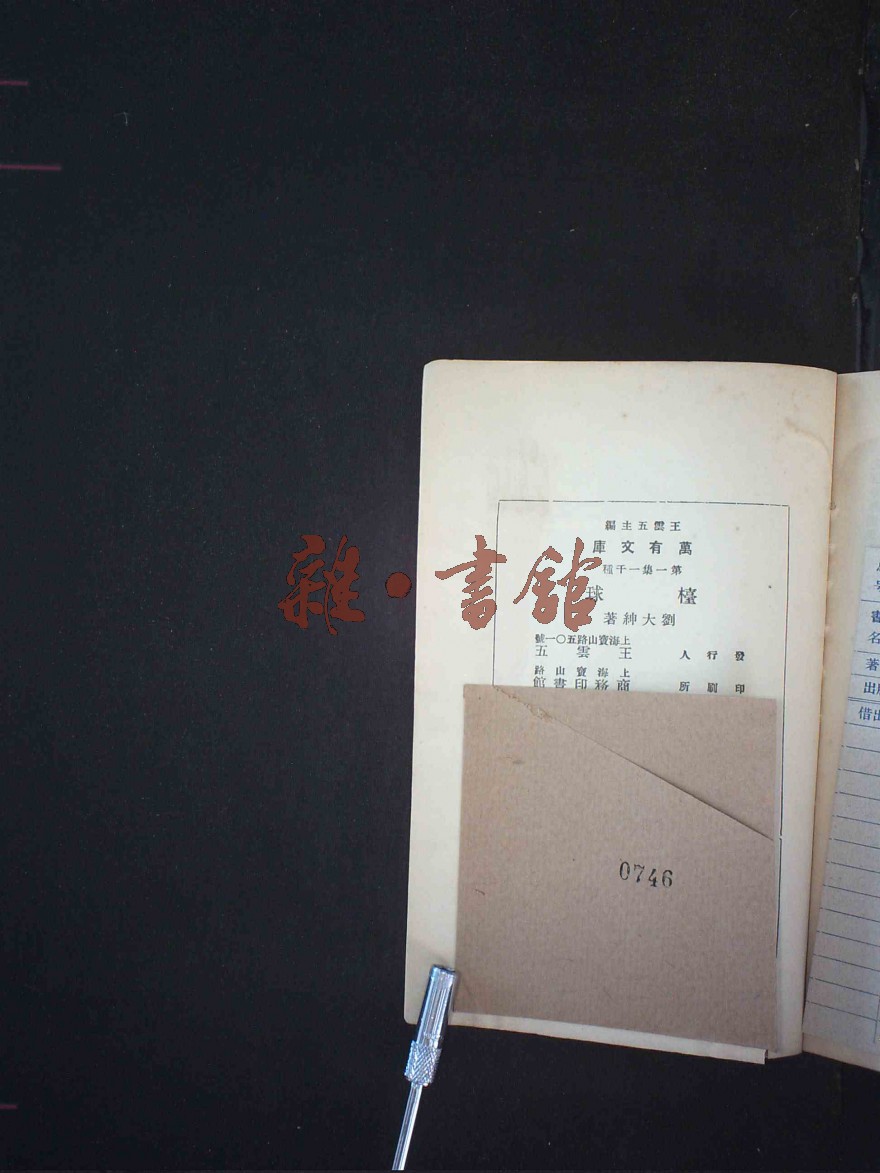 王雲五主編
萬有文庫
第一集一千種
檯球
劉大紳著
上海寶山路五〇一號
發行人 王雲五
上海寶山路
印刷所 商務印書館
0746
雜·書館
書
名
著
出
借出